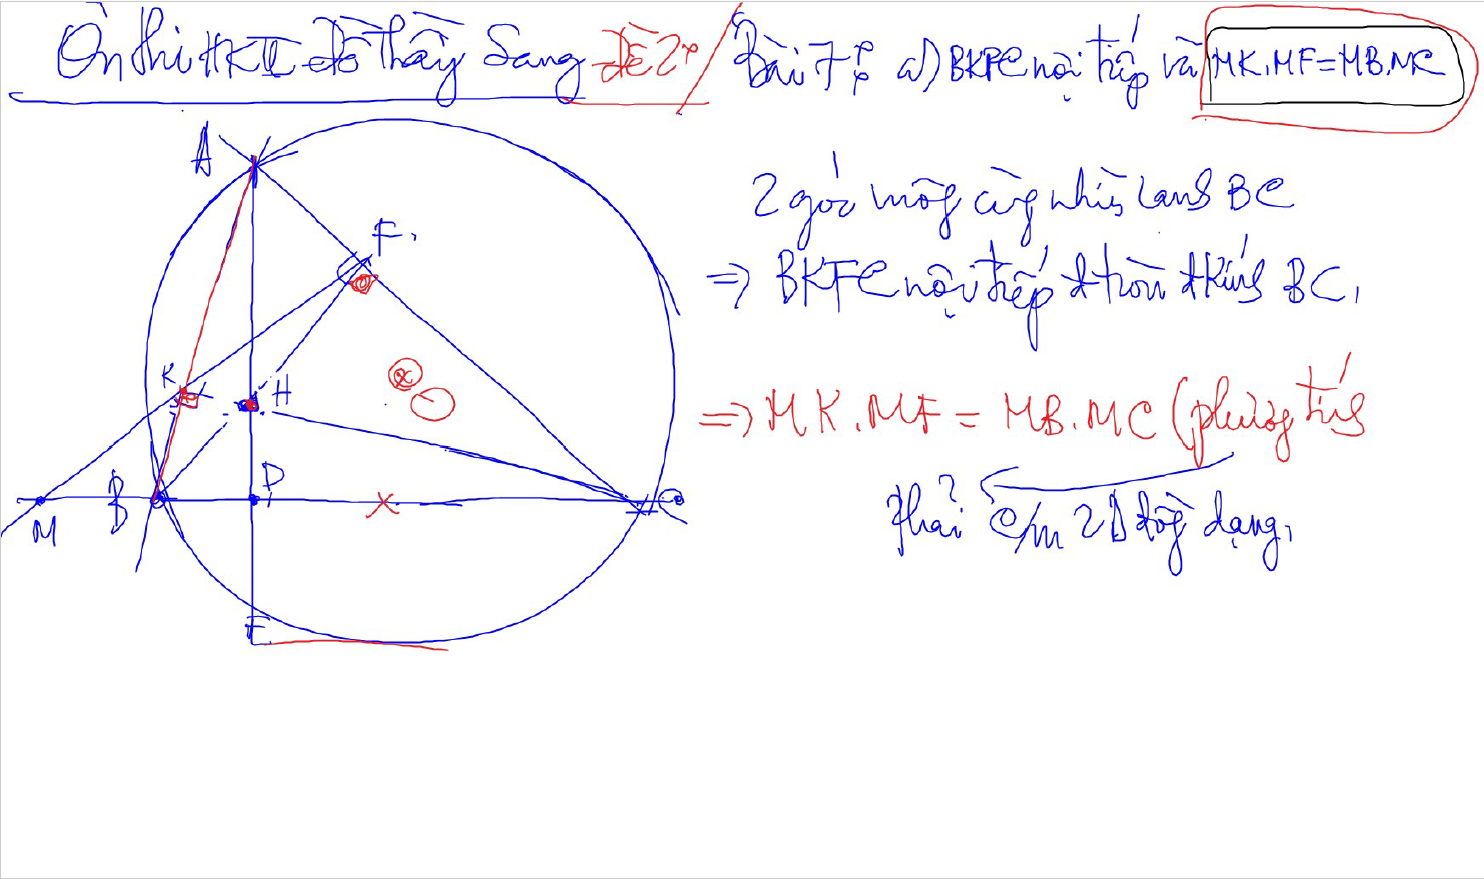 Ôn thi HKII đề Thầy Sang đề 2:
Bài 7: a) BKFC nội tiếp và MK.MF=MB.MC
2 góc vuông cùng nhìn cạnh BC
=> BKFC nội tiếp đtròn đkính BC.
=> MK.MF = MB.MC (phương tích
Phải c/m 2Δ đồng dạng.
A
F
K
H
D
B
M
C
E